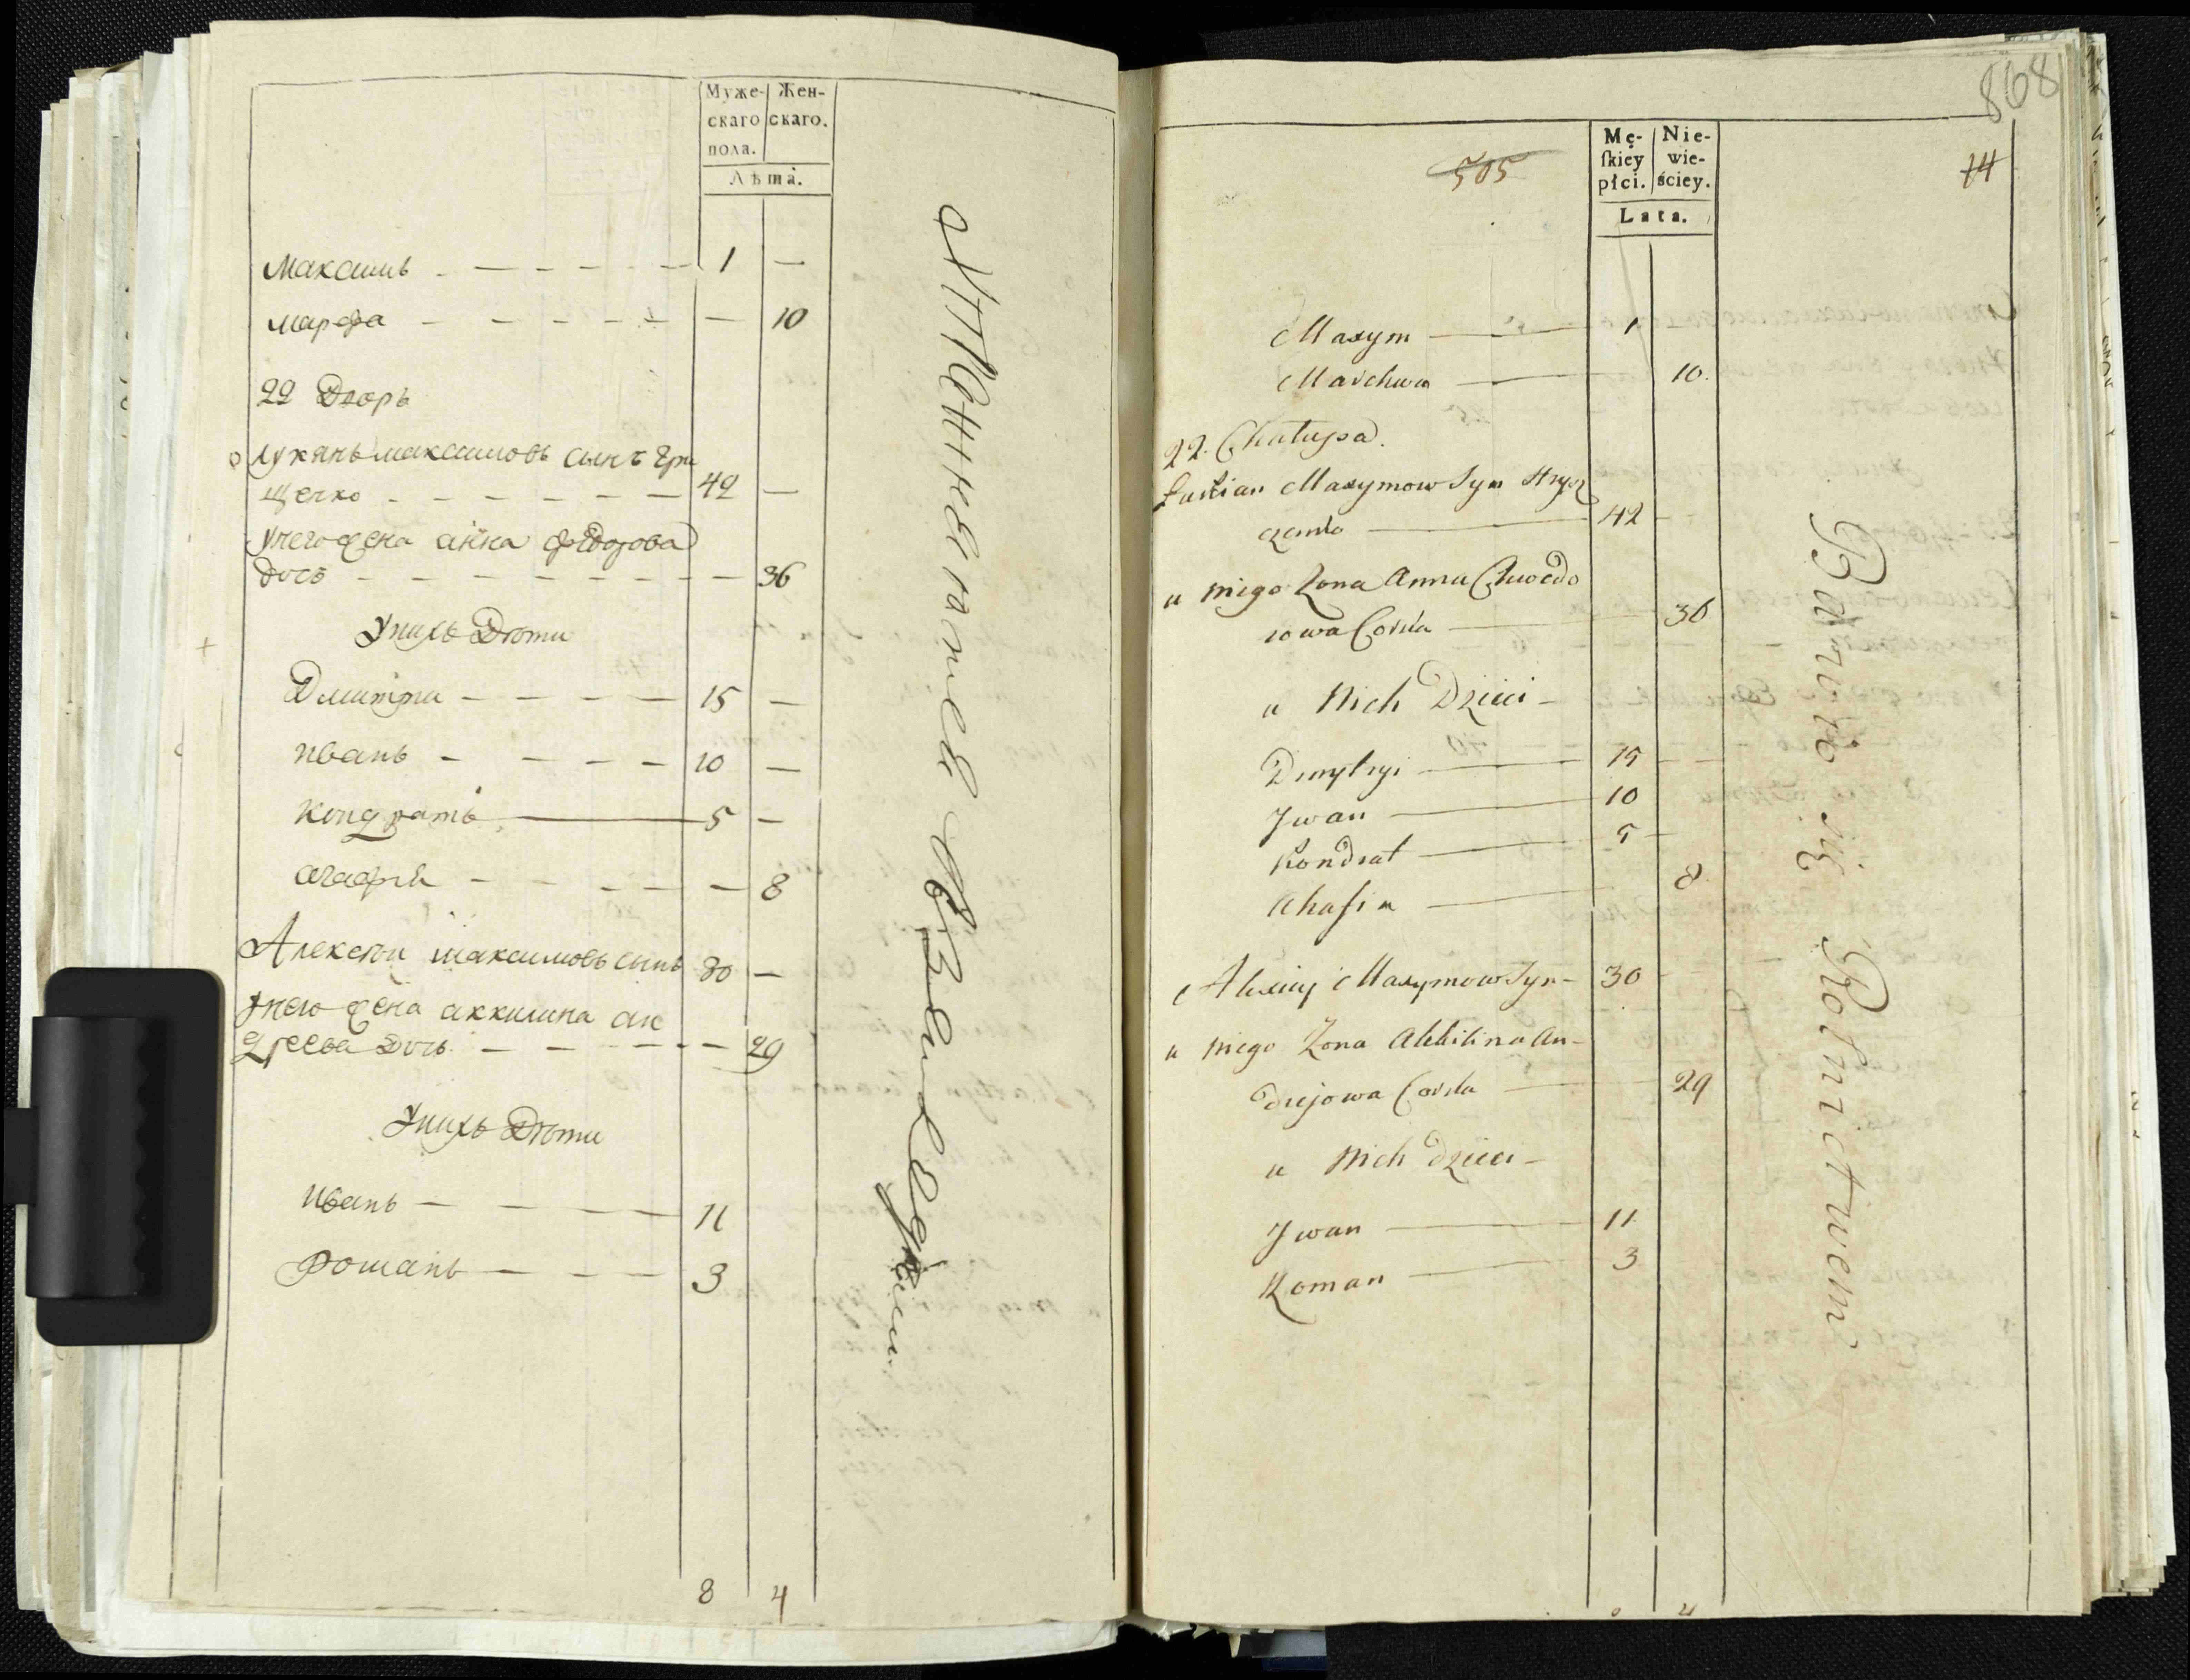 Муже-
скаго
пола.
Жен-
скаго.
Лѣта.
Максимъ 1 —
Марфа — 10
22 Дворъ
Лукянъ Максимовъ сынъ Гри
щечко 42 —
Унего жена анна фѣдорова
Дочь 36
Унихъ Дѣти
Дмитри 15 —
иванъ 10 —
Кондратъ 5 —
агафия — 8
Алексѣи максимовъ сынъ 30 —
Унего жена аккилина ан
дреева Дочь — 29
Унихъ Дѣти
Иванъ 11
Романъ 3
8 4
868
505
14
Mę-
ſkiey
płci.
Nie-
wie-
ściey.
Lata.
Maxym 1
Marchwa 10.
22. Chałupa.
Łukian Maxymow Syn Hrysz
czenko 42
u niego Żona Anna Chwedo
rowa Corka 36
u Nich Dzieci
Dmytryi 15
Jwan 10
Kondrat 5
Ahafia 8
Alexiej Maxymow Syn 30
u niego Żona Akkilina An-
drejowa Corka 29
u Nich Dzieci
Jwan 11
Roman 3
Bawią się Rolnictwem